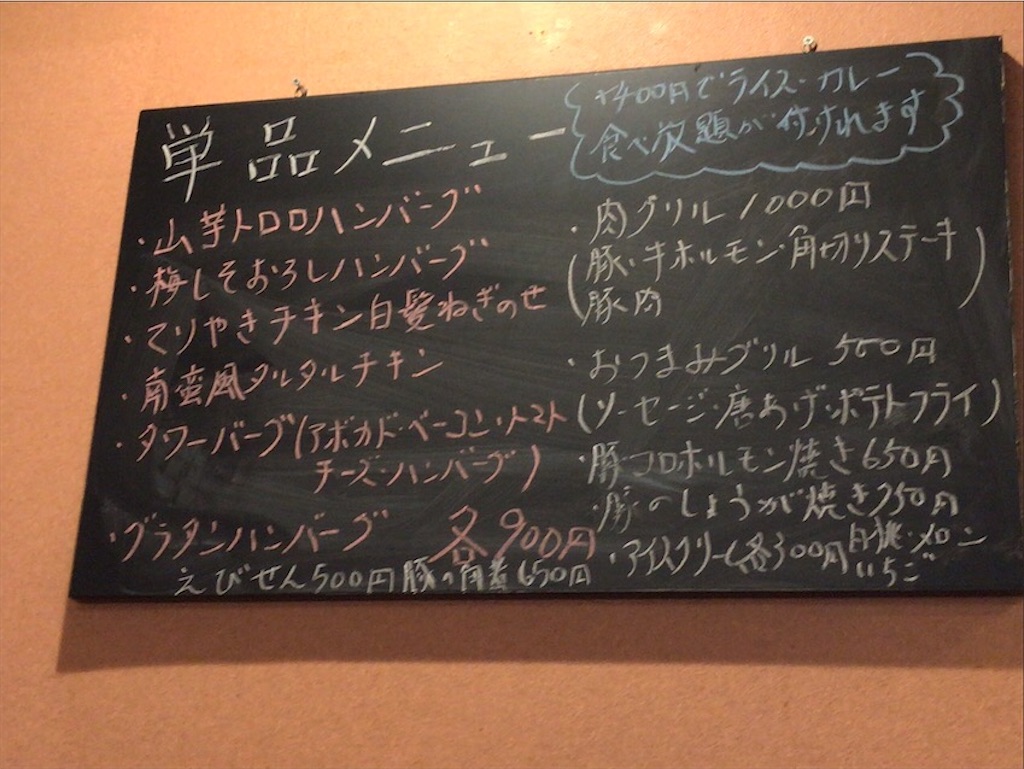 単品メニュー
+400円でライス・カレー
食べ放題が付けれます
・山芋トロロハンバーグ
・梅しそおろしハンバーグ
・てりやきチキン白髪ねぎのせ
・南蛮風タルタルチキン
・タワーバーグ(アボカド・ベーコン・トマト
チーズ・ハンバーグ)
・グラタンハンバーグ 各900円
えびせん500円 豚の角煮650円
・肉グリル 1000円
(豚・牛ホルモン・角切りステーキ
豚肉)
・おつまみグリル 500円
(ソーセージ・唐あげ・ポテトフライ)
・豚コロホルモン焼き650円
・豚のしょうが焼き750円
・アイスクリーム各300円 白桃・メロン
いちご